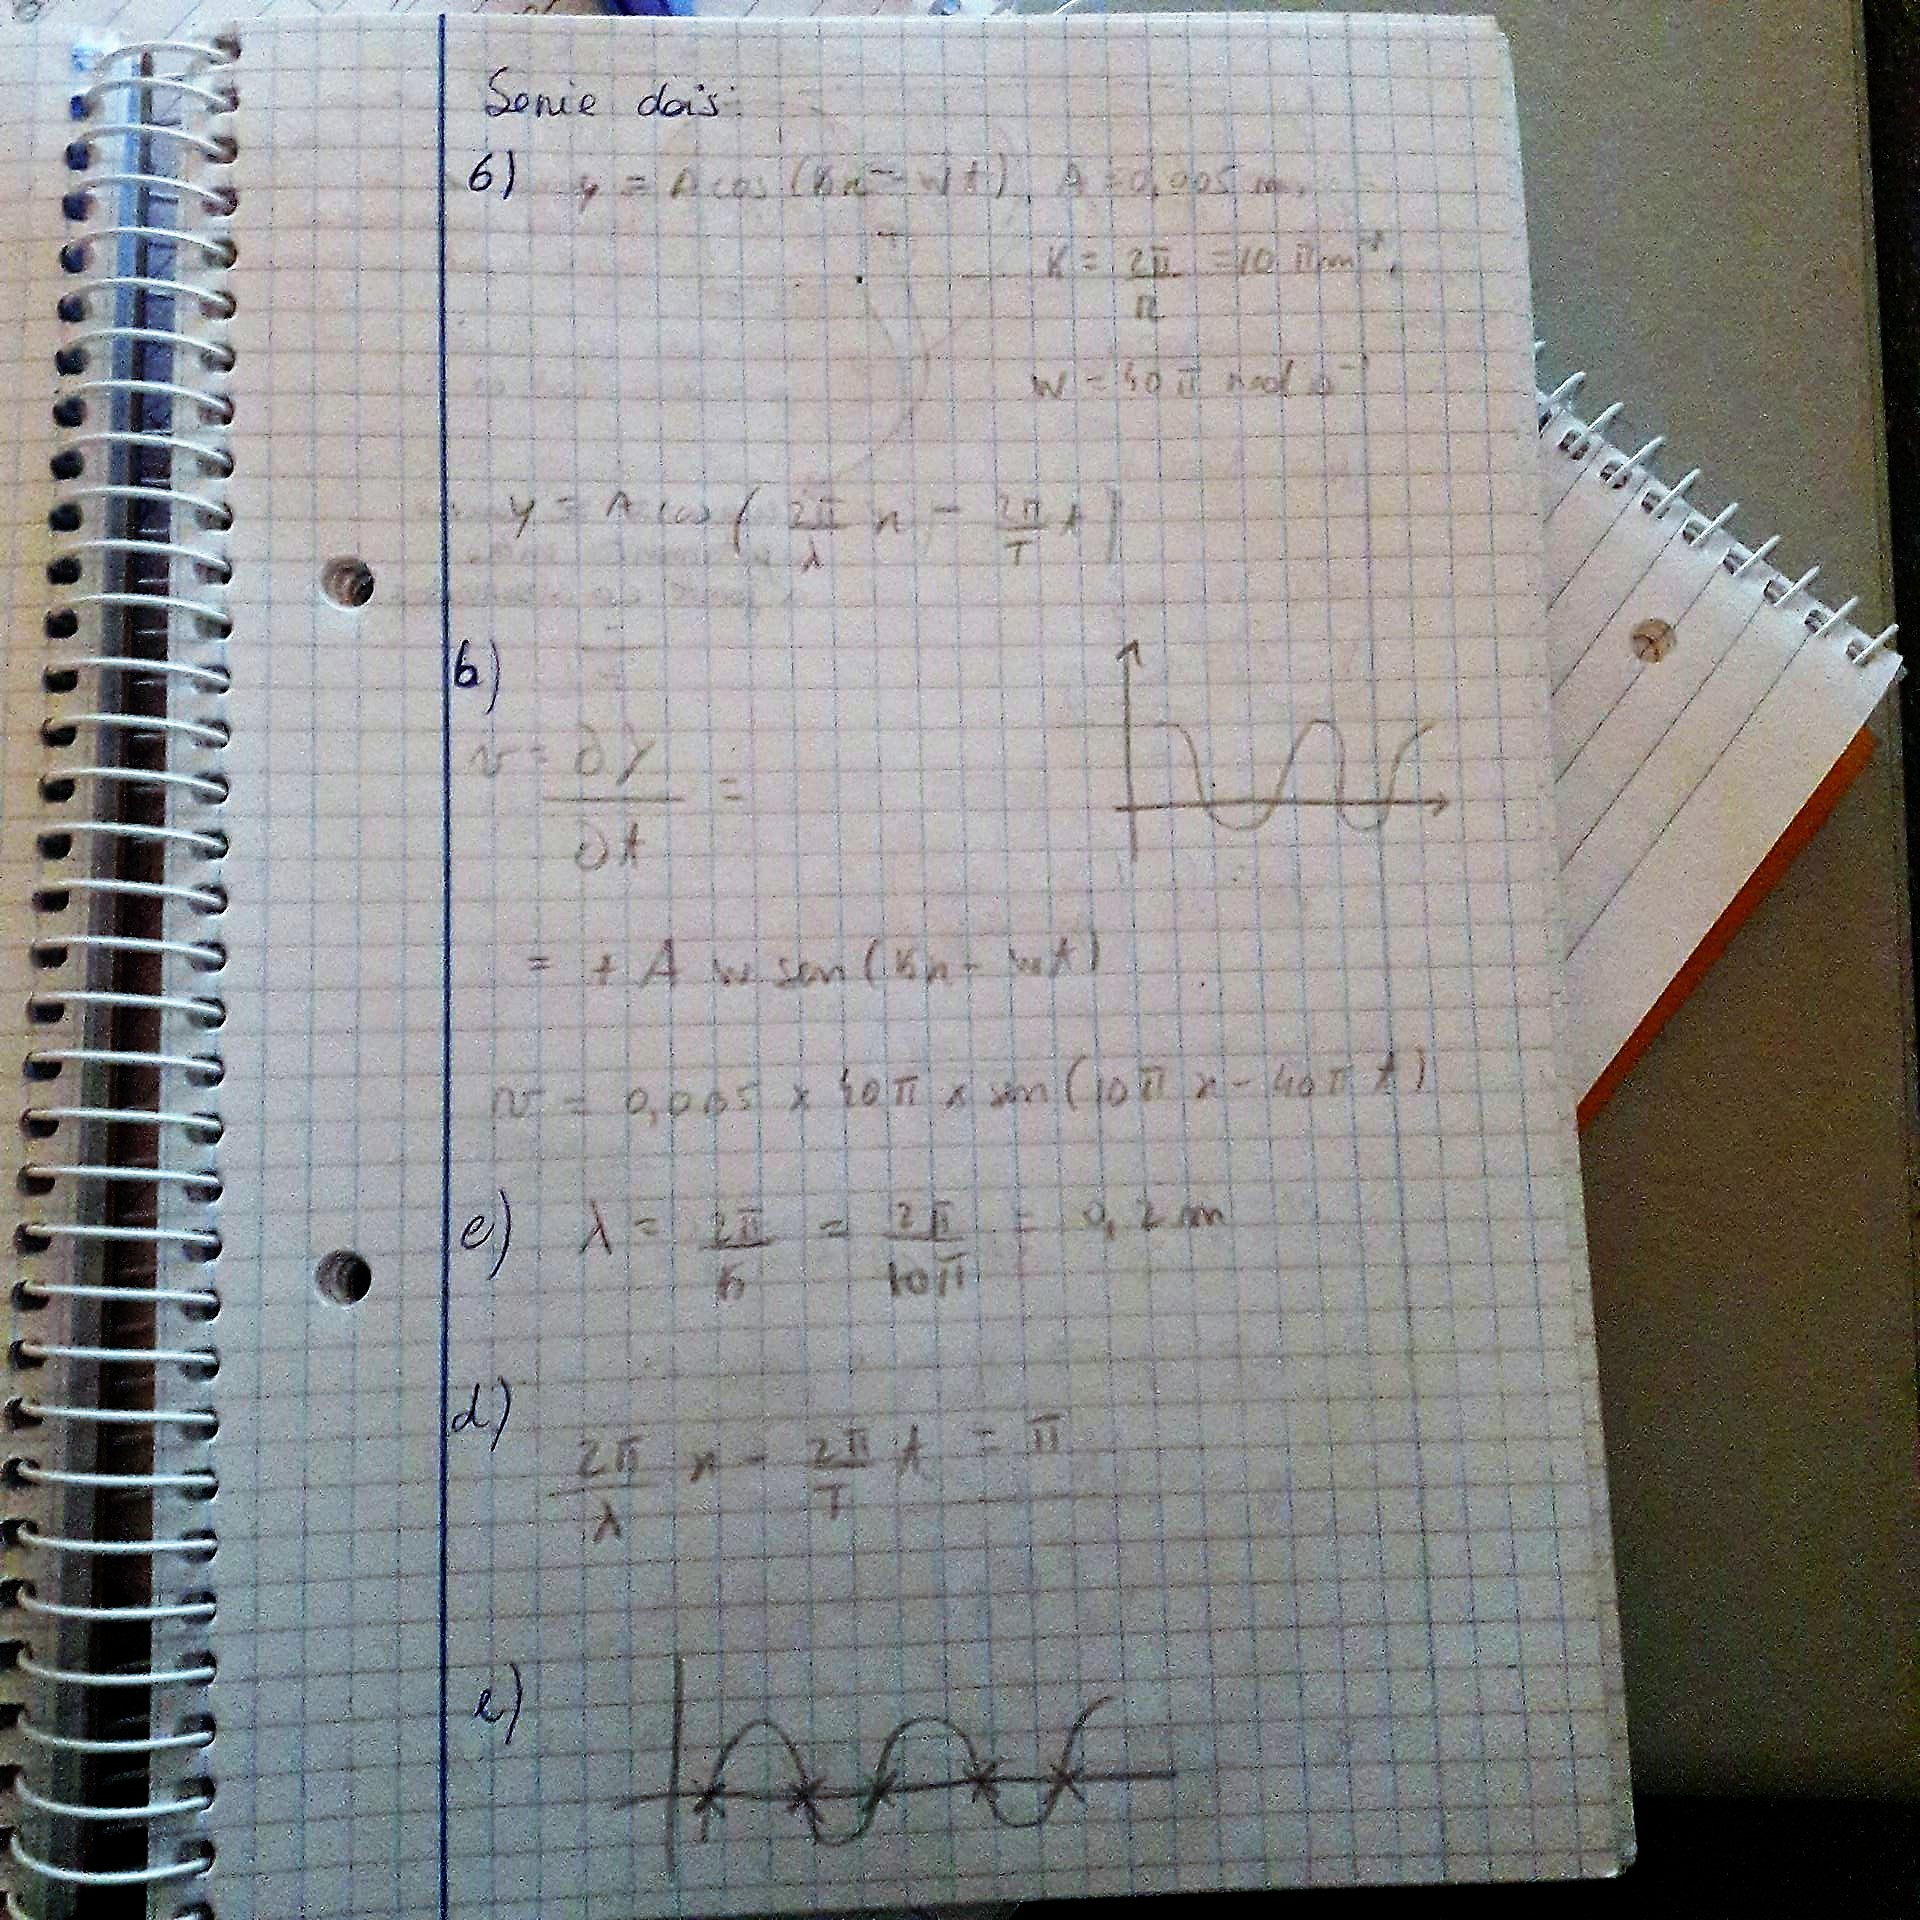 Serie dois:
6) y = A cos (kx - wt), A = 0,005 m,
K = 2π/λ = 10 π m⁻¹,
w = 40 π rad s⁻¹
y = A cos ( 2π/λ x - 2π/T t )
b)
v = ∂y/∂t =
= + A w sen (kx - wt)
v = 0,005 x 40π x sen (10π x - 40π t)
c) λ = 2π/k = 2π/10π = 0,2 m
d)
2π/λ x - 2π/T t = π
e)